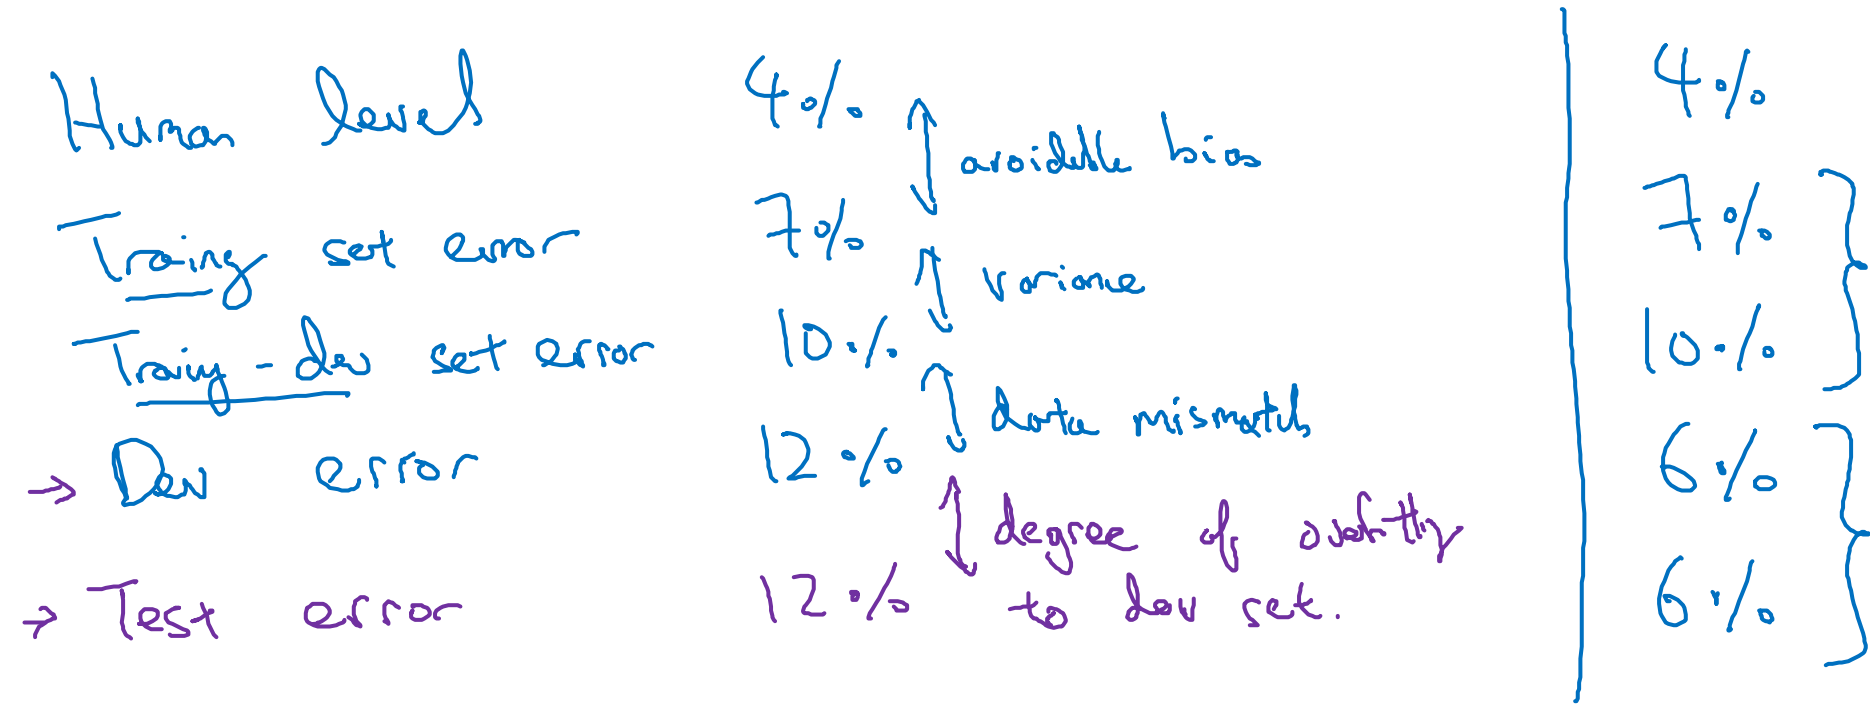 Human level 4% 4%
avoidable bias
Training set error 7% 7%
variance
Training-dev set error 10% 10%
data mismatch
Dev error 12% 6%
degree of overfitting
Test error 12% to dev set. 6%